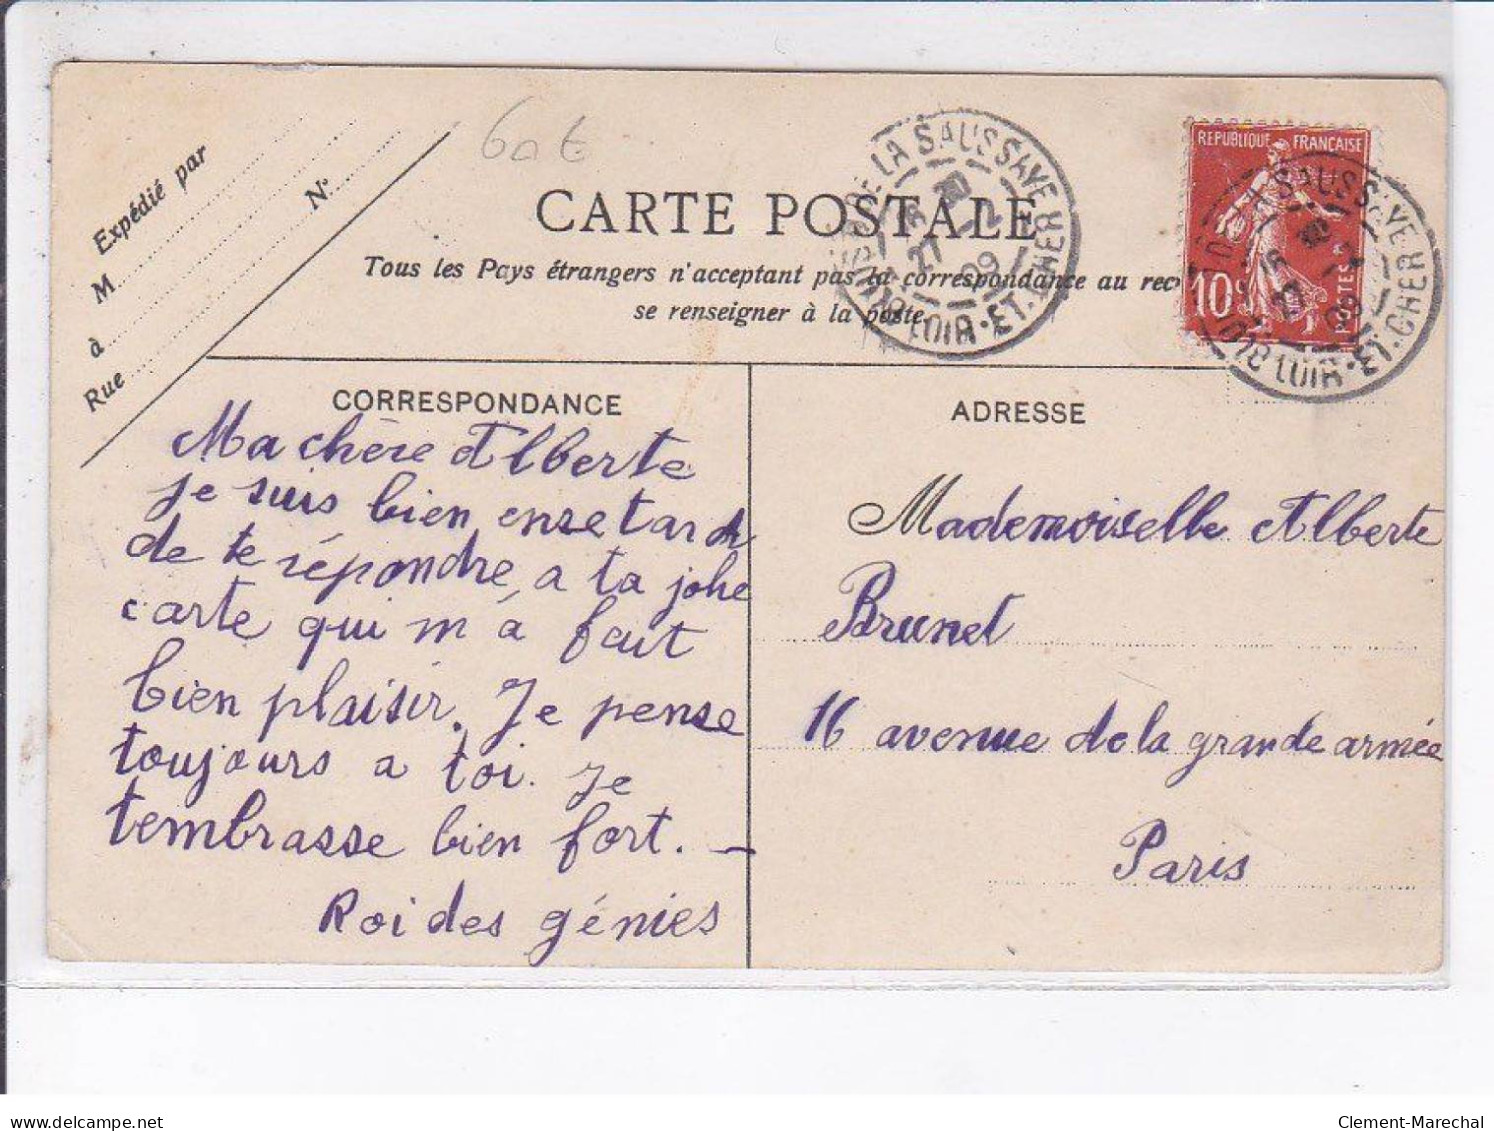 Expédié par
M
N°
à
Rue
60 €
CARTE POSTALE
Tous les Pays étrangers n'acceptant pas la correspondance au rec
se renseigner à la poste.
LA SAUSSAYE
27
09
LOIR-ET-CHER
REPUBLIQUE FRANÇAISE
10
POSTES
SAUSSAYE
27
09
LOIR-ET-CHER
CORRESPONDANCE
Ma chère Alberte
je suis bien enretard
de te répondre a ta jolie
carte qui m'á fait
bien plaisir. Je pense
toujours a toi. Je
tembrasse bien fort. —
Roi des génies
ADRESSE
Mademoiselle Alberte
Brunet
16 avenue de la grande armée
Paris
delcampe.net
Clement-Marechal